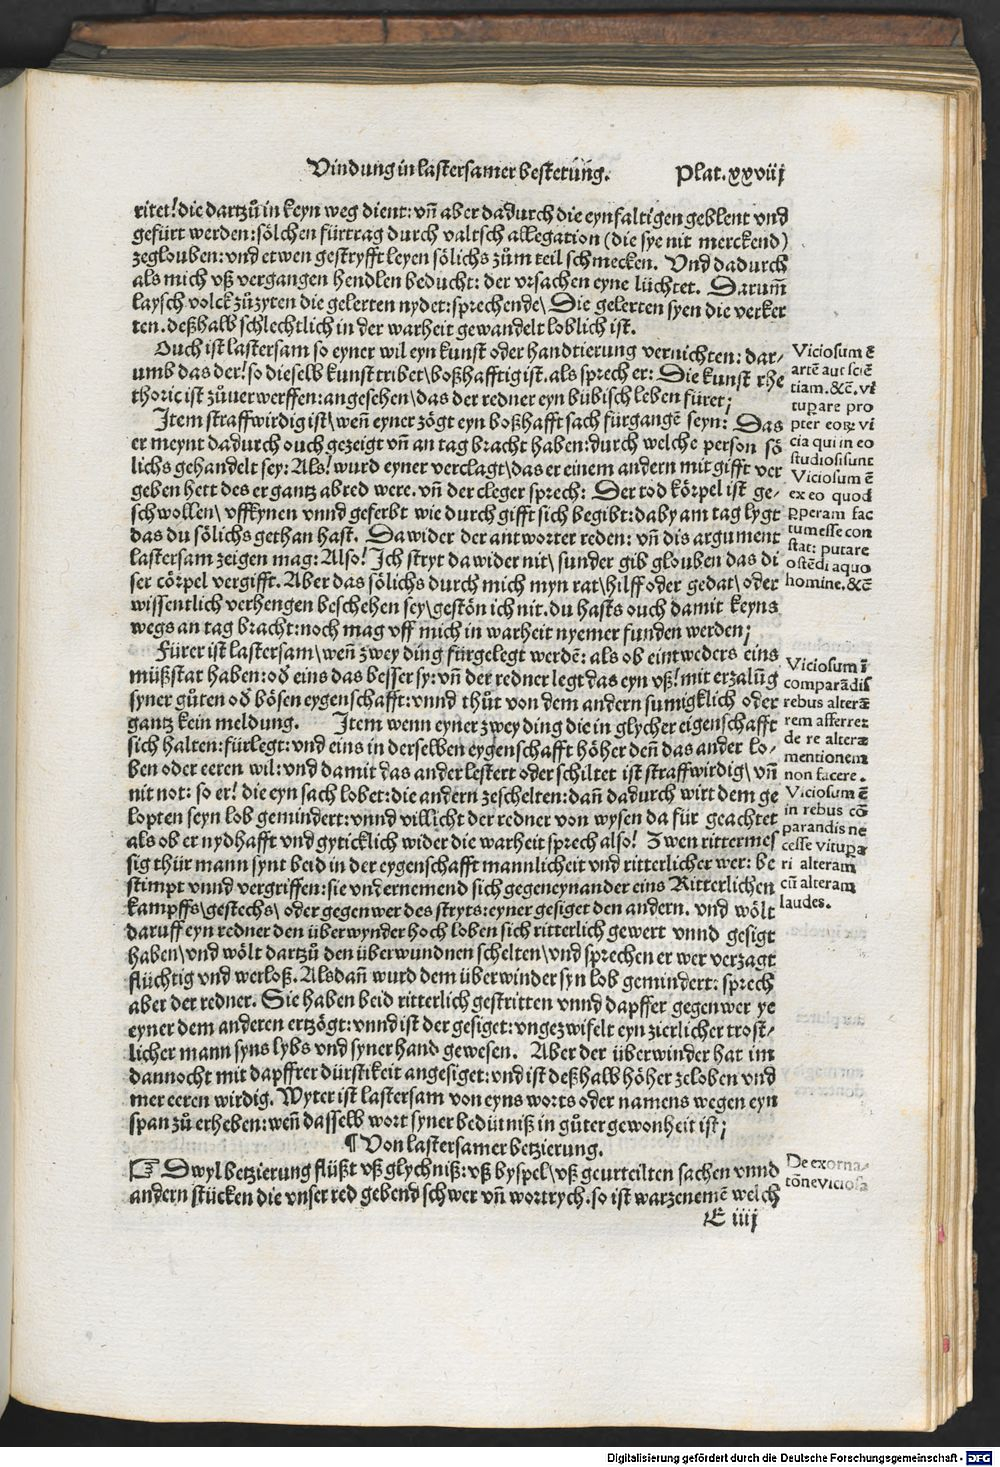 Vindung in lastersamer besterūng. Plat.xxviij
ritet! die dartzů in keyn weg dient: vñ aber dadurch die eynfaltigen geblent vnd
gefürt werden: sölchen fürtrag durch valtsch allegation (die sye nit merckend)
zeglouben: vnd etwen gestryfft leyen sölichs zům teil schmecken. Vnd dadurch
als mich vß vergangen hendlen beducht: der vrsachen eyne lüchtet. Darum̃
laysch volck zůzyten die gelerten nydet: sprechende\ Die gelerten syen die verker
ten. deßhalb schlechtlich in der warheit gewandelt loblich ist.
Ouch ist lastersam so eyner wil eyn kunst oder handtierung vernichten: dar⸗
umb das der! so dieselb kunst tribet\ boßhafftig ist. als sprech er: Die kunst rhe
thoric ist zůuerwerffen: angesehen\ das der redner eyn bübisch leben füret;
Item straffwirdig ist\ weñ eyner zögt eyn boßhafft sach fürgangē seyn: Das
er meynt dadurch ouch gezeigt vñ an tag bracht haben: durch welche person sö
lichs gehandelt sey: Als! wurd eyner verclagt\ das er einem andern mit gifft ver
geben hett des er gantz abred were. vñ der cleger sprech: Der tod körpel ist ge⸗
schwollen\ vffkynen vnnd geferbt wie durch gifft sich begibt: daby am tag lygt
das du sölichs gethan hast. Da wider der antworter reden: vñ dis argument
lastersam zeigen mag: Also! Ich stryt da wider nit\ sunder gib glouben das di
ser cörpel vergifft. Aber das sölichs durch mich myn rat\ hilff oder gedat\ oder
wissentlich verhengen beschehen sey\ gestōn ich nit. du hasts ouch damit keyns
wegs an tag bracht: noch mag vff mich in warheit nyemer funden werden;
Fürer ist lastersam\ weñ zwey ding fürgelegt werdē: als ob eintweders eins
müßstat haben: oď eins das besser sy: vñ der redner legt das eyn vß! mit erzalūg
syner gůten oď bösen eygenschafft: vnnd thůt von dem andern sumigklich oder
gantz kein meldung. Item wenn eyner zwey ding die in glycher eigenschafft
sich halten: fürlegt: vnd eins in derselben eygenschafft höher deñ das ander lo⸗
ben oder eeren wil: vnd damit das ander lestert oder schiltet ist straffwirdig\ vñ
nit not: so er! die eyn sach lobet: die andern zeschelten: dañ dadurch wirt dem ge
lopten seyn lob gemindert: vnnd villicht der redner von wysen da für geachtet
als ob er nydhafft vnd gyticklich wider die warheit sprech also! Zwen rittermes
sig thür mann synt beid in der eygenschafft mannlicheit vnd ritterlicher wer: be
stimpt vnnd vergriffen: sie vndernemend sich gegeneynander eins Ritterlichen
kampffs\ gestechs\ oder gegenwer des stryts: eyner gesiget den andern. vnd wölt
daruff eyn redner den überwynder hoch loben sich ritterlich gewert vnnd gesigt
haben\ vnd wölt dartzů den überwundnen schelten\ vnd sprechen er wer verzagt
flüchtig vnd werloß. Alsdañ wurd dem überwinder syn lob gemindert: sprech
aber der redner. Sie haben beid ritterlich gestritten vnnd dapffer gegenwer ye
eyner dem anderen ertzögt: vnnd ist der gesiget: vngezwifelt eyn zierlicher trost⸗
licher mann syns lybs vnd syner hand gewesen. Aber der überwinder hat im
dannocht mit dapffrer dürstikeit angesiget: vnd ist deßhalb höher zeloben vnd
mer eeren wirdig. Wyter ist lastersam von eyns worts oder namens wegen eyn
span zů erheben: weñ dasselb wort syner bedütniß in gůter gewonheit ist;
¶ Von lastersamer betzierung.
☞ Dwyl betzierung flüßt vß glychniß: vß byspel\ vß geurteilten sachen vnnd
andern stücken die vnser red gebend schwer vñ wortrych. so ist warzenemē welch
E iiij
Viciosum ē
artē aut sciē
tiam. &c̄. vi
tuꝑare pro
pter eoꝝ vi
cia qui in eo
studiosi sunt
Viciosum ē
ex eo quod
ꝑperam fac
tum esse con
stat: putare
ostēdi a quo
homine. &c̄
Viciosum ī
comparādis
rebus alterā
rem afferre:
de re altera
mentionem
non facere.
Viciosum ē
in rebus cō
parandis ne
cesse vituꝑa
ri alteram
cū alteram
laudes.
De exorna⸗
tōne viciosa
Digitalisierung gefördert durch die Deutsche Forschungsgemeinschaft - DFG